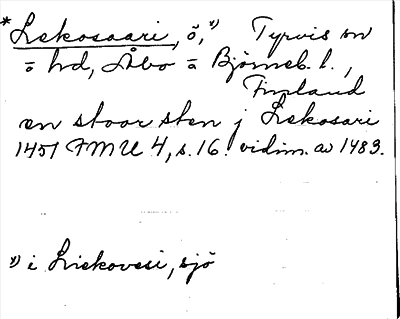 *Liekosaari, ö,¹⁾ Tyrvis sn
o hd, Åbo o Björneb. l.,
Finland
en stoor sten j Liekosari
1451 FMU 4, s. 16. vidim. av 1483.
¹⁾ i Liekovesi, sjö